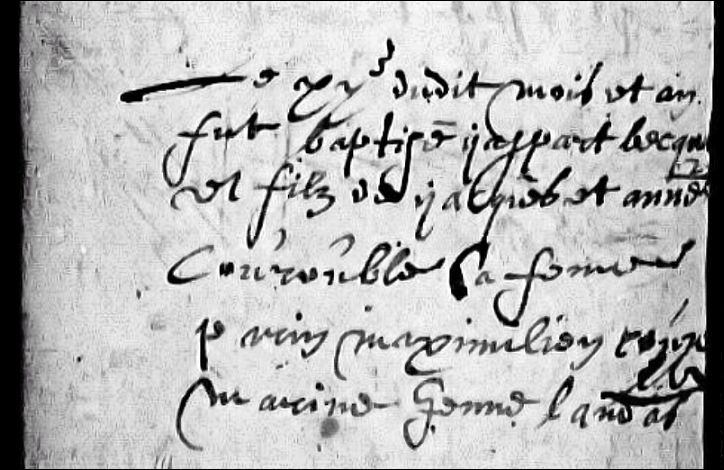 Le xxj dudit mois et an
fut baptisé jaspart becqu
et filz de jacques et anne
Courouble sa femme
parin maximilien
marine Jenne landas